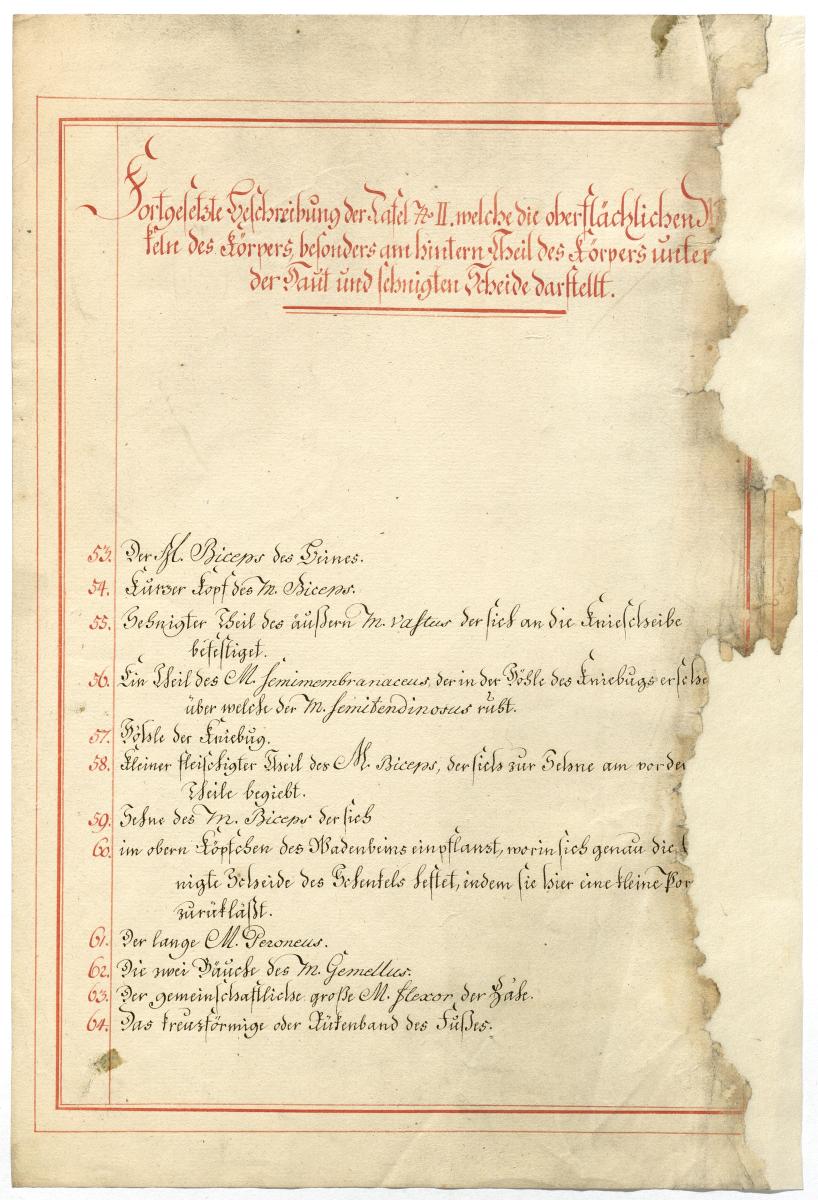 Fortgesetzte Beschreibung der Tafel No II. welche die oberflächlichen M
keln des Körpers, besonders am hintern Theil des Körpers unter
der Haut und sehnigten Scheide darstellt.
53. Der M. Biceps des Beines.
54. Kurzer Kopf des M. Biceps.
55. Sehnigter Theil des äußern M. vastus der sich an die Kniescheibe
befestiget.
56. Ein Theil des M. semimembranaceus, der in der Höhle des Kniebugs ersche
über welche der M. semitendinosus ruht.
57. Höhle der Kniebug.
58. Kleiner fleischigter Theil des M. Biceps, der sich zur Sehne am vorder
Theile begiebt.
59. Sehne des M. Biceps der sich
60. im obern Köpfchen des Wadenbeins einpflanzt, worin sich genau die s
nigte Scheide des Schenkels heftet, indem sie hier eine kleine Por
zurükläßt.
61. Der lange M. Peroneus.
62. Die zwei Bäuche des M. Gemellus.
63. Der gemeinschaftliche große M. flexor der Zähe.
64. Das kreuzförmige oder Rükenband des Fußes.